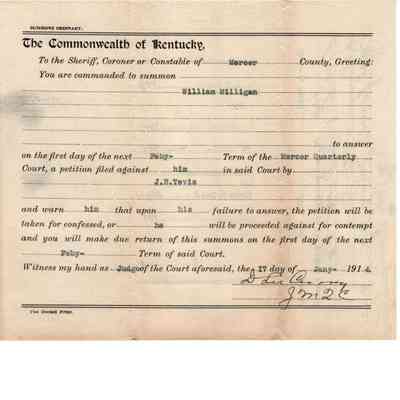 SUMMONS ORDINARY.
The Commonwealth of Kentucky,
To the Sheriff, Coroner or Constable of Mercer County, Greeting:
You are commanded to summon
William Milligan
to answer
on the first day of the next Feby- Term of the Mercer Quarterly
Court, a petition filed against him in said Court by
J.H.Yevis
and warn him that upon his failure to answer, the petition will be
taken for confessed, or he will be proceeded against for contempt
and you will make due return of this summons on the first day of the next
Feby- Term of said Court.
Witness my hand as Judge of the Court aforesaid, the 17 day of Jany- 1914.
J M Q C